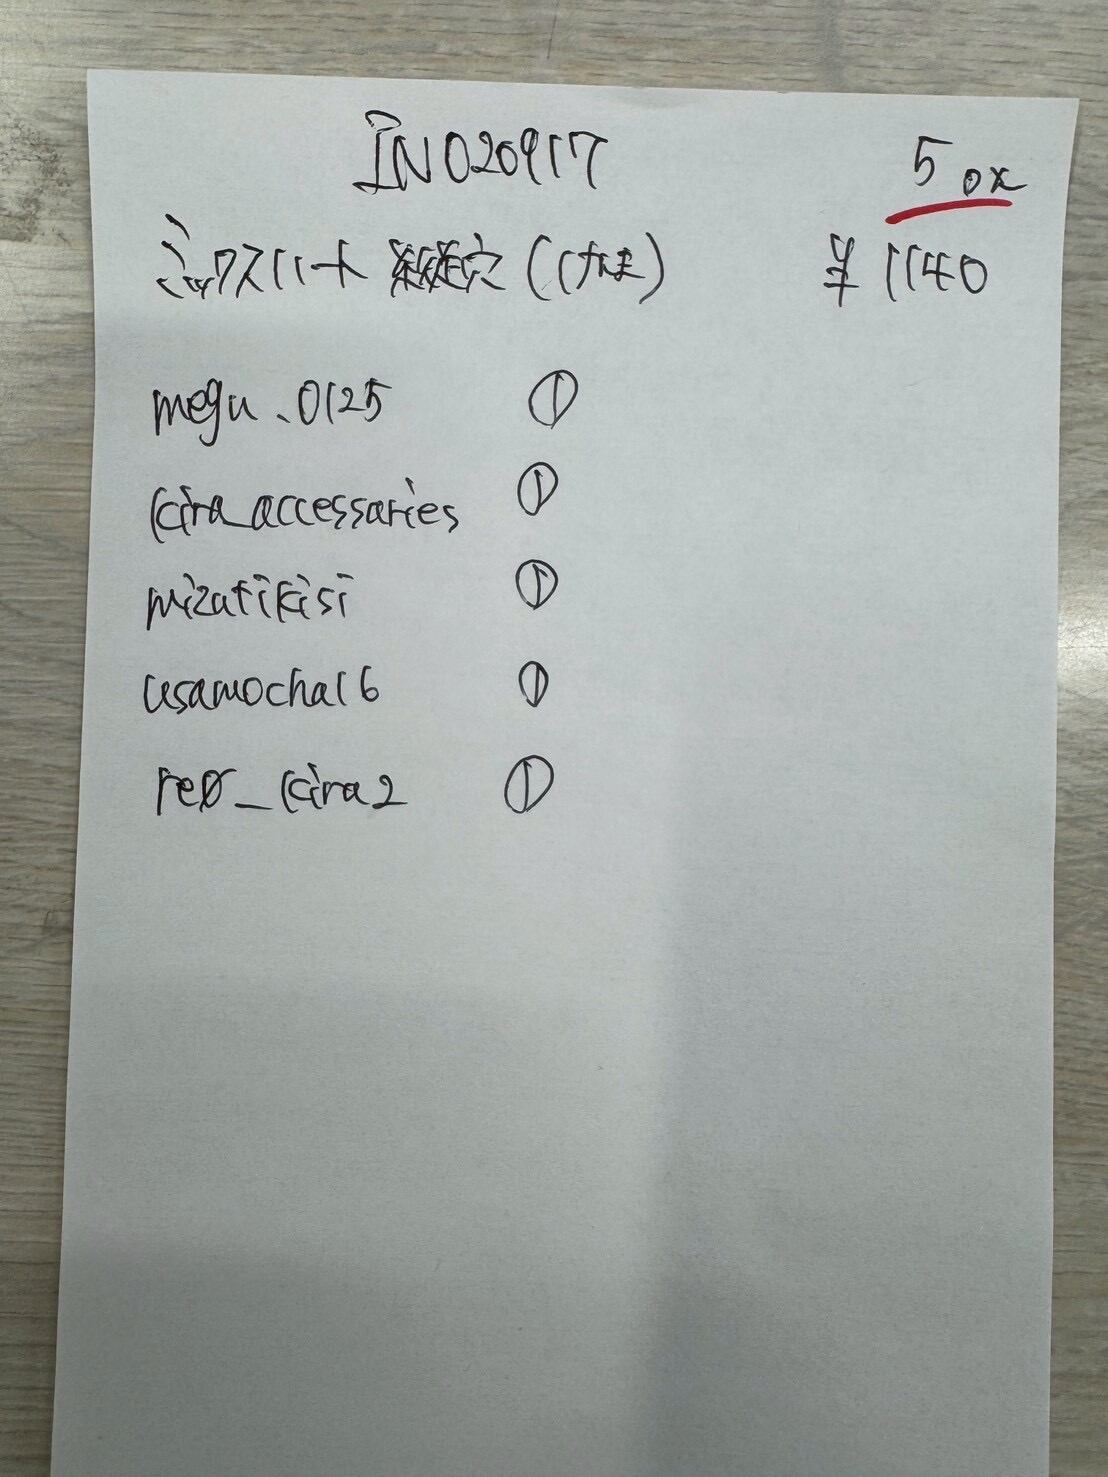 IN020917
5ox
ミックスハート 縦縦穴 (けま)
¥1140
megu.0125 ①
kira_accessaries ①
mizutikisi ①
usamocha16 ①
re0_kira2 ①